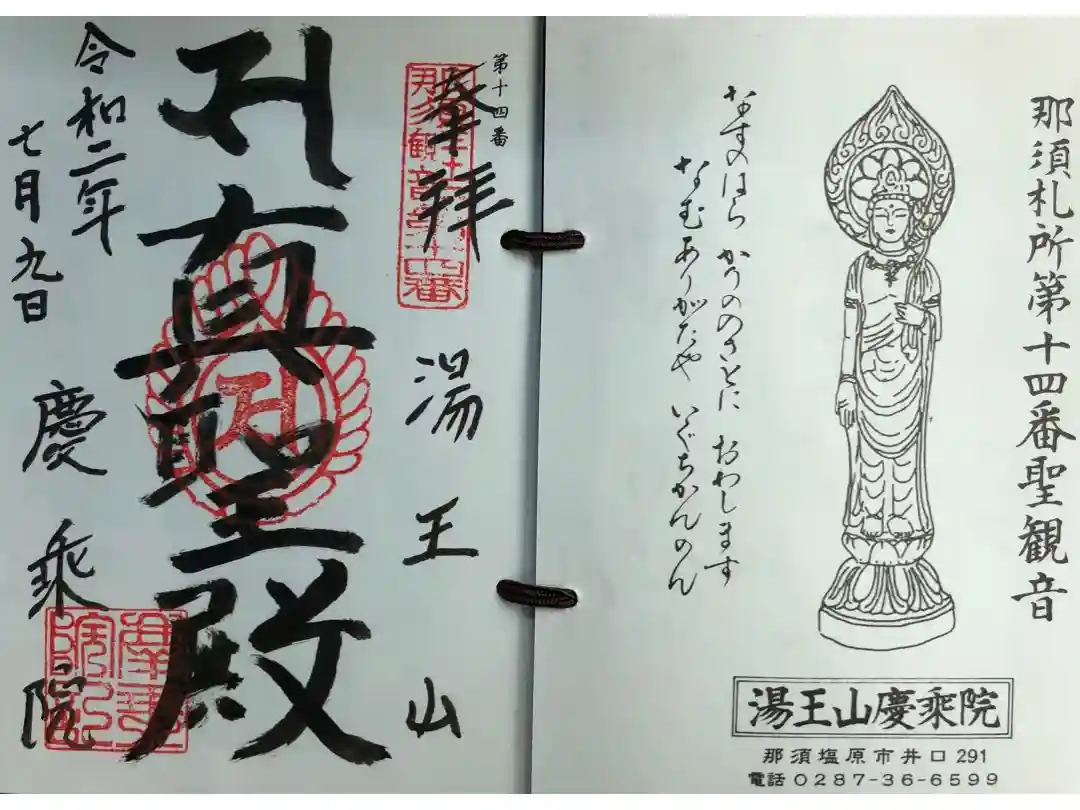 那須札所第十四番聖観音
なすのはら かりのさとに おわします
なむありがたや いぐちかんのん
湯王山慶乗院
那須塩原市井口 291
電話 0287-36-6599
第十四番
奉拝
湯王山
真聖殿
令和二年
七月九日
慶乗院